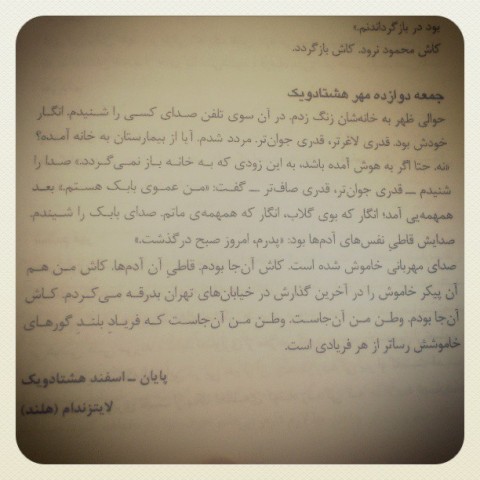 بود در بازگرداندنم.»
کاش محمود نرود. کاش بازگردد.
جمعه دوازده مهر هشتادویک
حوالی ظهر به خانه‌شان زنگ زدم. در آن سوی تلفن صدای کسی را شنیدم. انگار
خودش بود. قدری لاغرتر، قدری جوان‌تر. مردد شدم. آیا از بیمارستان به خانه آمده؟
«نه. حتا اگر به هوش آمده باشد، به این زودی که به خانه باز نمی‌گردد.» صدا را
شنیدم ــ قدری جوان‌تر، قدری صاف‌تر ــ گفت: «من عموی بابک هستم.» بعد
همهمه‌یی آمد؛ انگار که بوی گلاب، انگار که همهمه‌ی ماتم. صدای بابک را شنیدم.
صدایش قاطیِ نفس‌های آدم‌ها بود: «پدرم، امروز صبح درگذشت.»
صدای مهربانی خاموش شده است. کاش آن‌جا بودم. قاطیِ آن آدم‌ها. کاش من هم
آن پیکر خاموش را در آخرین گذارش در خیابان‌های تهران بدرقه می‌کردم. کاش
آن‌جا بودم. وطن من آن‌جاست. وطن من آن‌جاست که فریادِ بلندِ گورهای
خاموشش رساتر از هر فریادی است.
پایان ــ اسفند هشتادویک
لایتزندام (هلند)